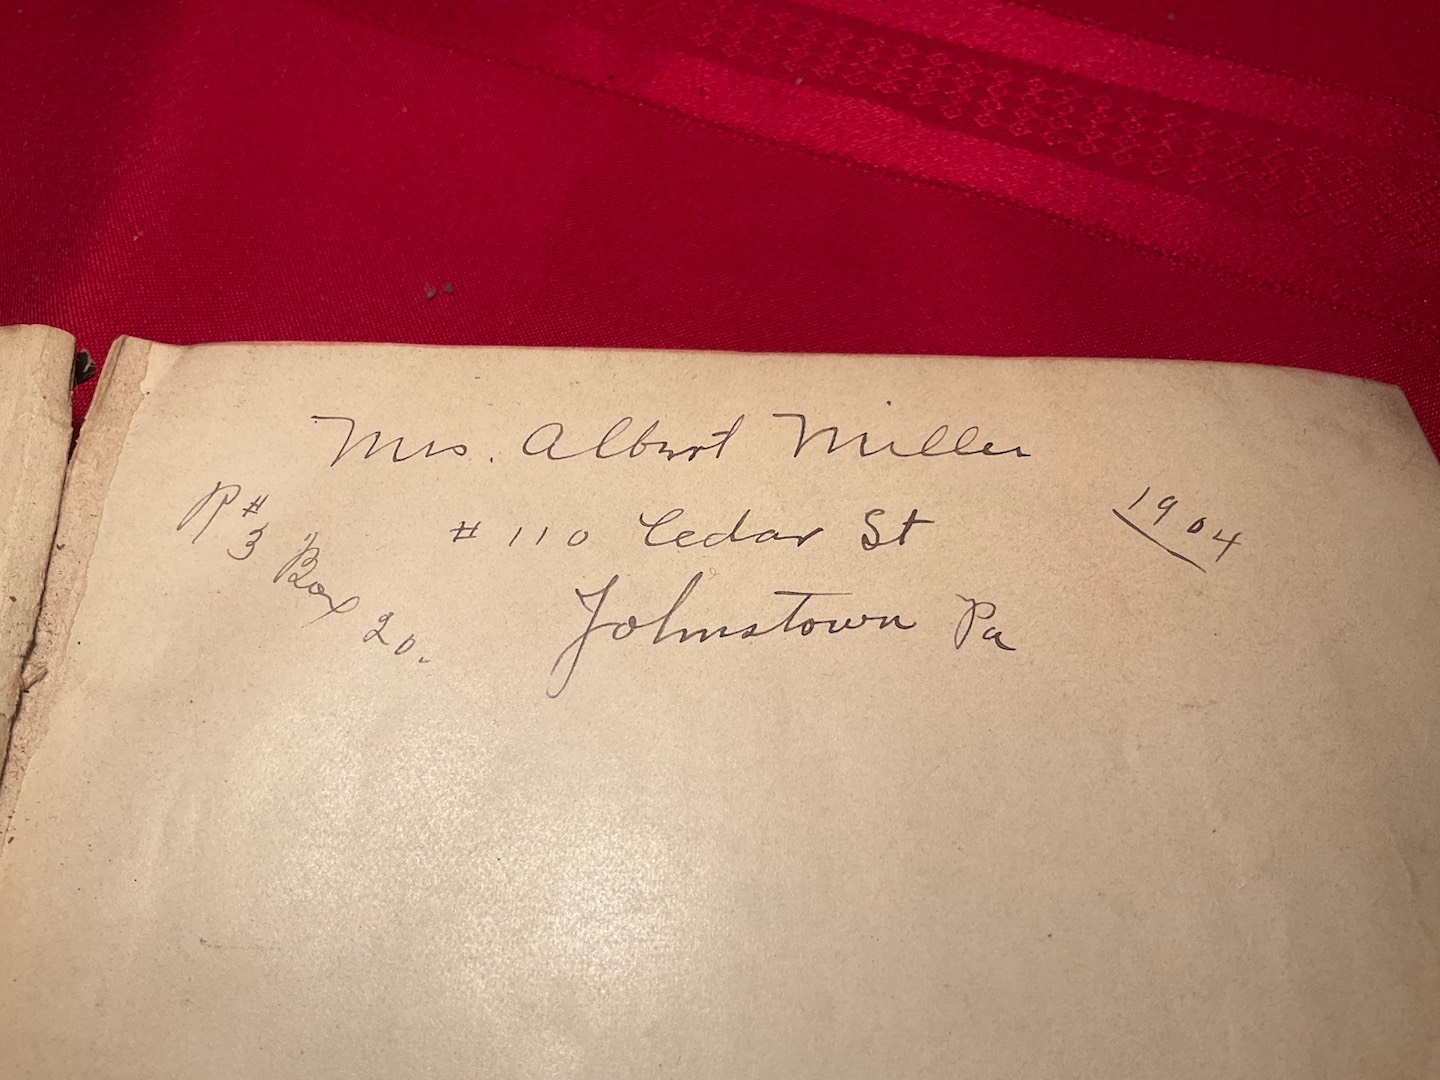 Mrs. Albert Miller
R#3 Box 20.
#110 Cedar St
1904
Johnstown Pa